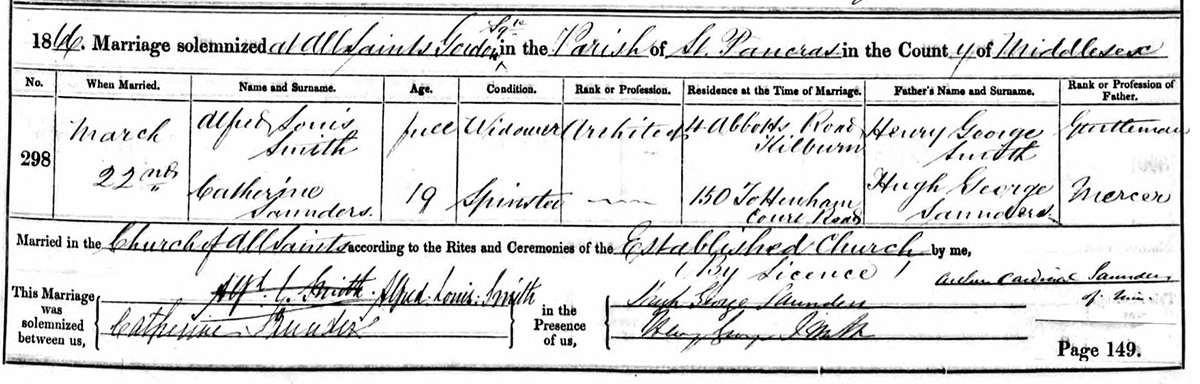 1866. Marriage solemnized at All Saints Gordon Sqre in the Parish of St. Pancras in the County of Middlesex
No. When Married. Name and Surname. Age. Condition. Rank or Profession. Residence at the Time of Marriage. Father's Name and Surname. Rank or Profession of Father.
298
March 22nd
Alfred Louis Smith full Widower Architect 4 Abbotts Road Kilburn Henry George Smith Gentleman
Catherine Saunders. 19 Spinster 150 Tottenham Court Road Hugh George Saunders Mercer
Married in the Church of All Saints according to the Rites and Ceremonies of the Established Church by me,
(By Licence)
Cardinal Saunders
This Marriage was solemnized between us,
Alfred Louis Smith
Catherine Saunders
in the Presence of us,
George Saunders
Henry George Smith
Page 149.